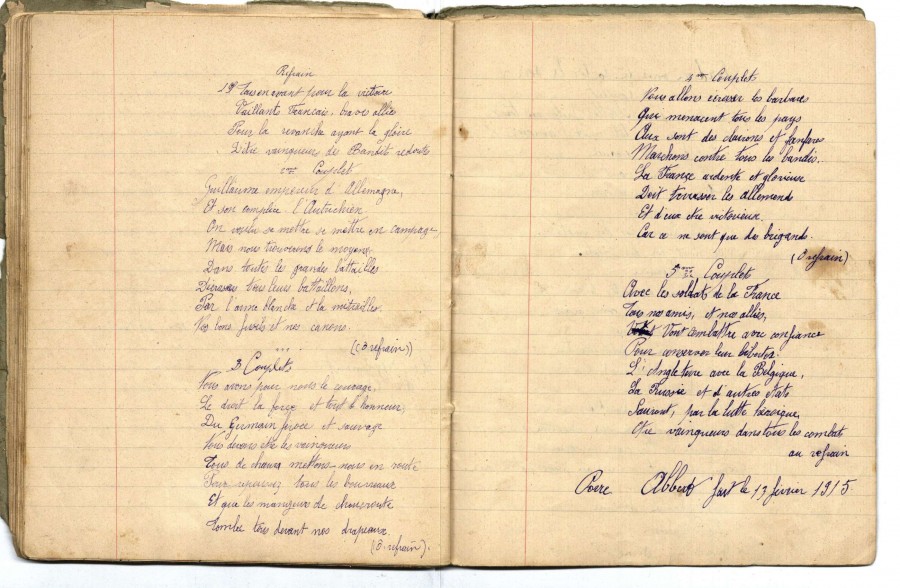 Refrain
Tous en avant pour la victoire
Vaillants Francais, braves alliés
Pour la revanche ayant la gloire
D'être vainqueurs de Bandits
2me Couplet
Guillaume empereur d'Allemagne,
Et son complice l'Autrichien
On voulu se mettre se mettre en campagne
Mais nous trouverons le moyens
Dans toutes les grandes battailles
tous leurs battaillons,
Par l'arme blanche et la mitrailles
Nos bons fusils et nos canons.
(O refrain)
3 Couplets
Nous avons pour nous le courage
Le droit la force et tout l'honneur,
Du Germain féroce et sauvage
Nous devons être les vainqueurs
Tous de mettons-nous en route
Pour repoussez tous les bourreaux
Et que les mangeurs de choucroute
Tombe tous devant nos drapeaux.
(O. refrain).
4me Couplets
Nous allons écraser les barbares
Qui menacent tous les pays
Aux sont des clairons et fanfares
Marchons contre tous les bandis.
La France ardente et glorieuse
Doit terrasser les allemends
Et d'eux être victorieux
Car ce ne sont que des brigands.
(O refrain)
5eme Couplet
Avec les soldats de la France
Tous nos amis, et nos alliés,
Vont combattre avec confiance
Pour conserver leur
L'Angleterre avec la Belgique,
La Russie et d'autres états
Sauront, par la lutte héroique,
Etre vainqueurs dans tous les combats
au refrain
fait le 13 février 1915